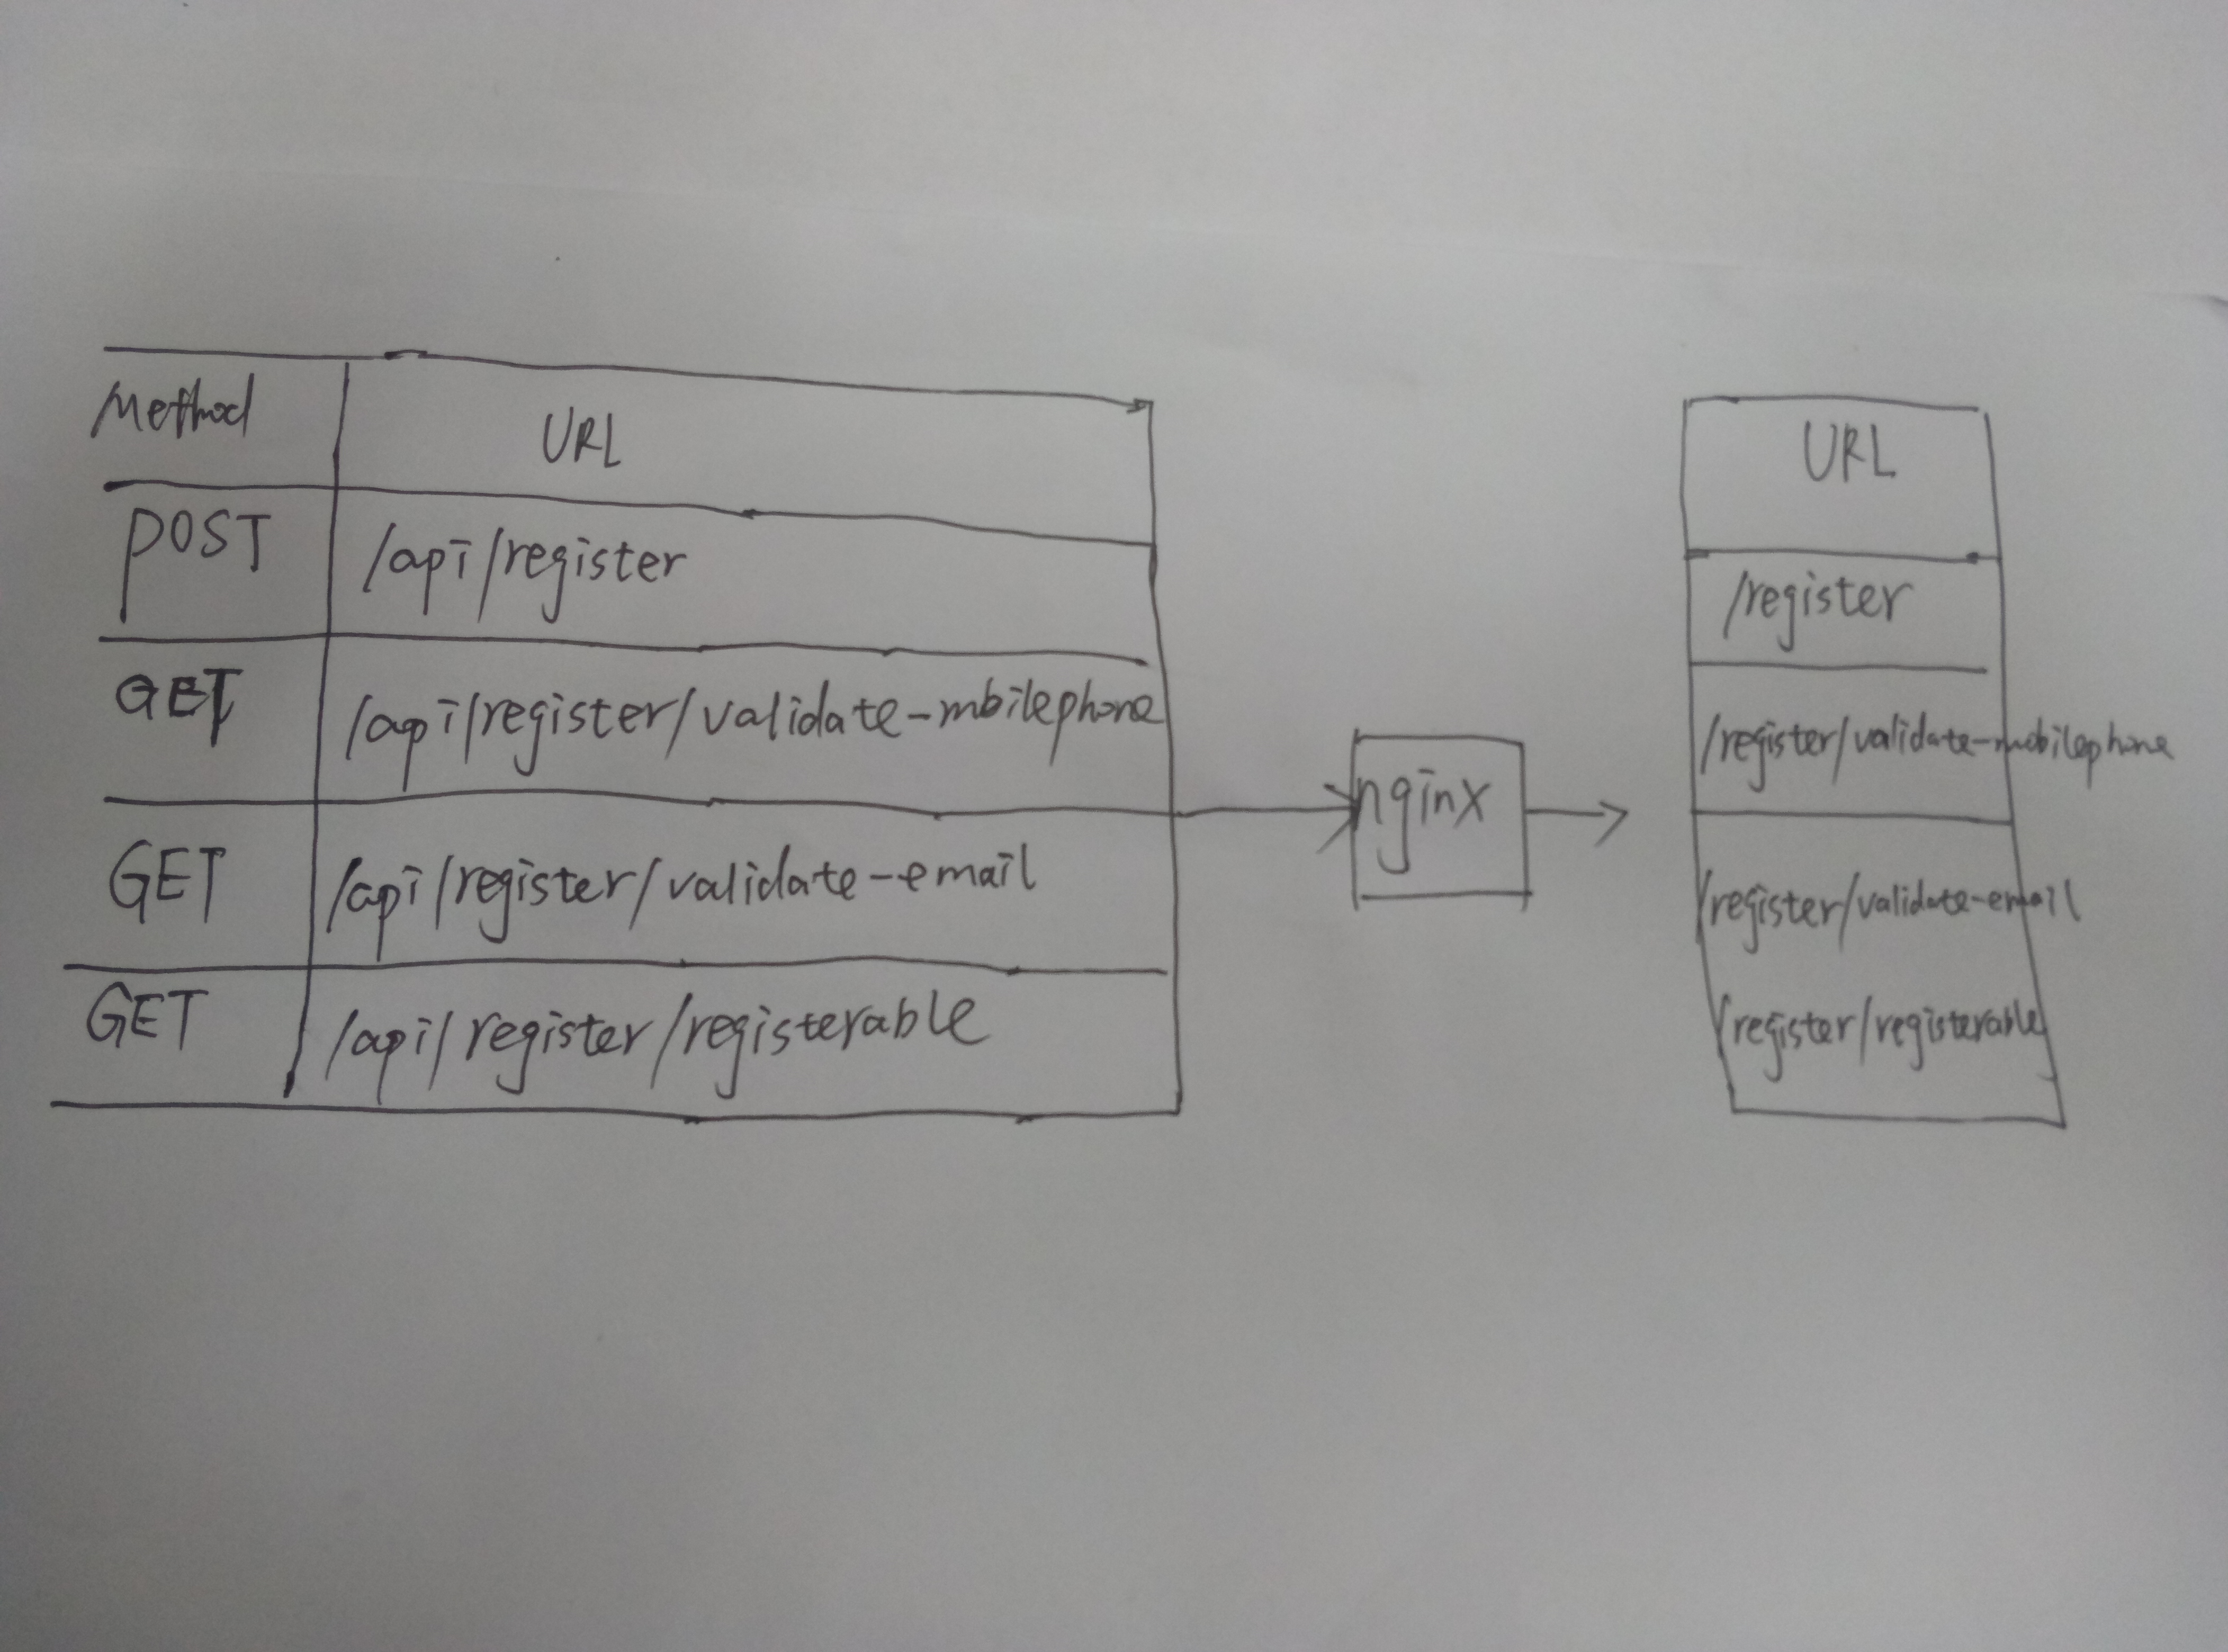 Method URL
POST /api/register
GET /api/register/validate-mbilephone
GET /api/register/validate-email
GET /api/register/registerable
nginx
URL
/register
/register/validate-mobilephone
/register/validate-email
/register/registerable